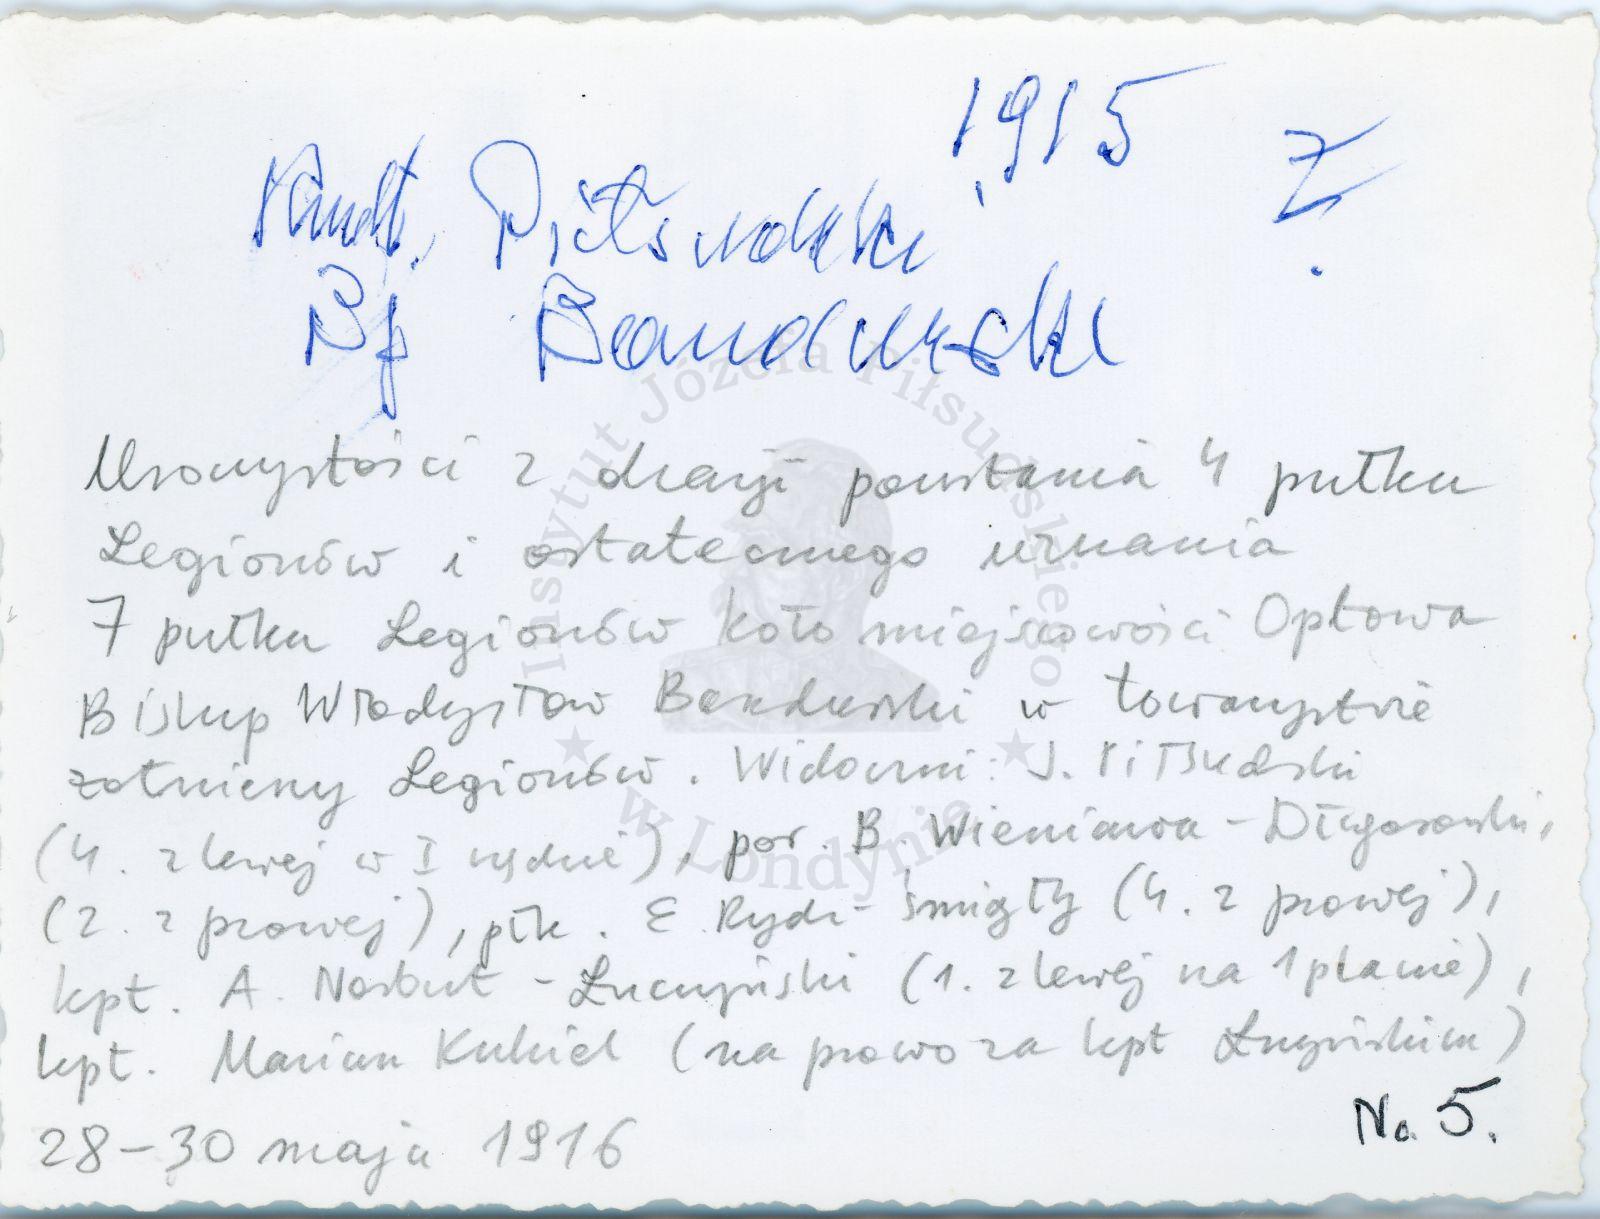 1915 Z.
Kmdt. Piłsudski
Bp Bandurski
Uroczystości z okazji powstania 4 pułku
Legionów i ostatecznego uznania
7 pułku Legionów koło miejscowości Optowa
Biskup Władysław Bandurski w towarzystwie
żołnierzy Legionów. Widoczni: J. Piłsudski
(4. z lewej w I rzędzie), por. B. Wieniawa-Długoszowski,
(2. z prawej), płk. E. Rydz-Śmigły (4. z prawej),
kpt. A. Narbut-Łuczyński (1. z lewej na 1 planie),
kpt. Marian Kukiel (na prawo za kpt Łuczyńskim)
28-30 maja 1916
No. 5.
Instytut Józefa Piłsudskiego
w Londynie